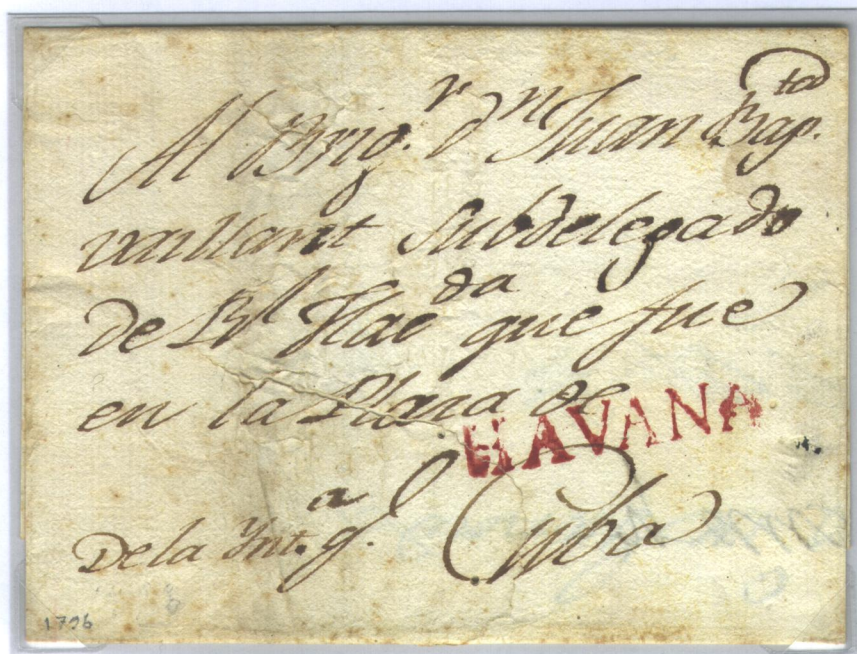 Al Brig.r dn Juan Bap.ta
vaillant Subdelegado
de Rl Hacda que fue
en la Plaza de
HAVANA
Cuba
De la Ynt.a gl.
1796